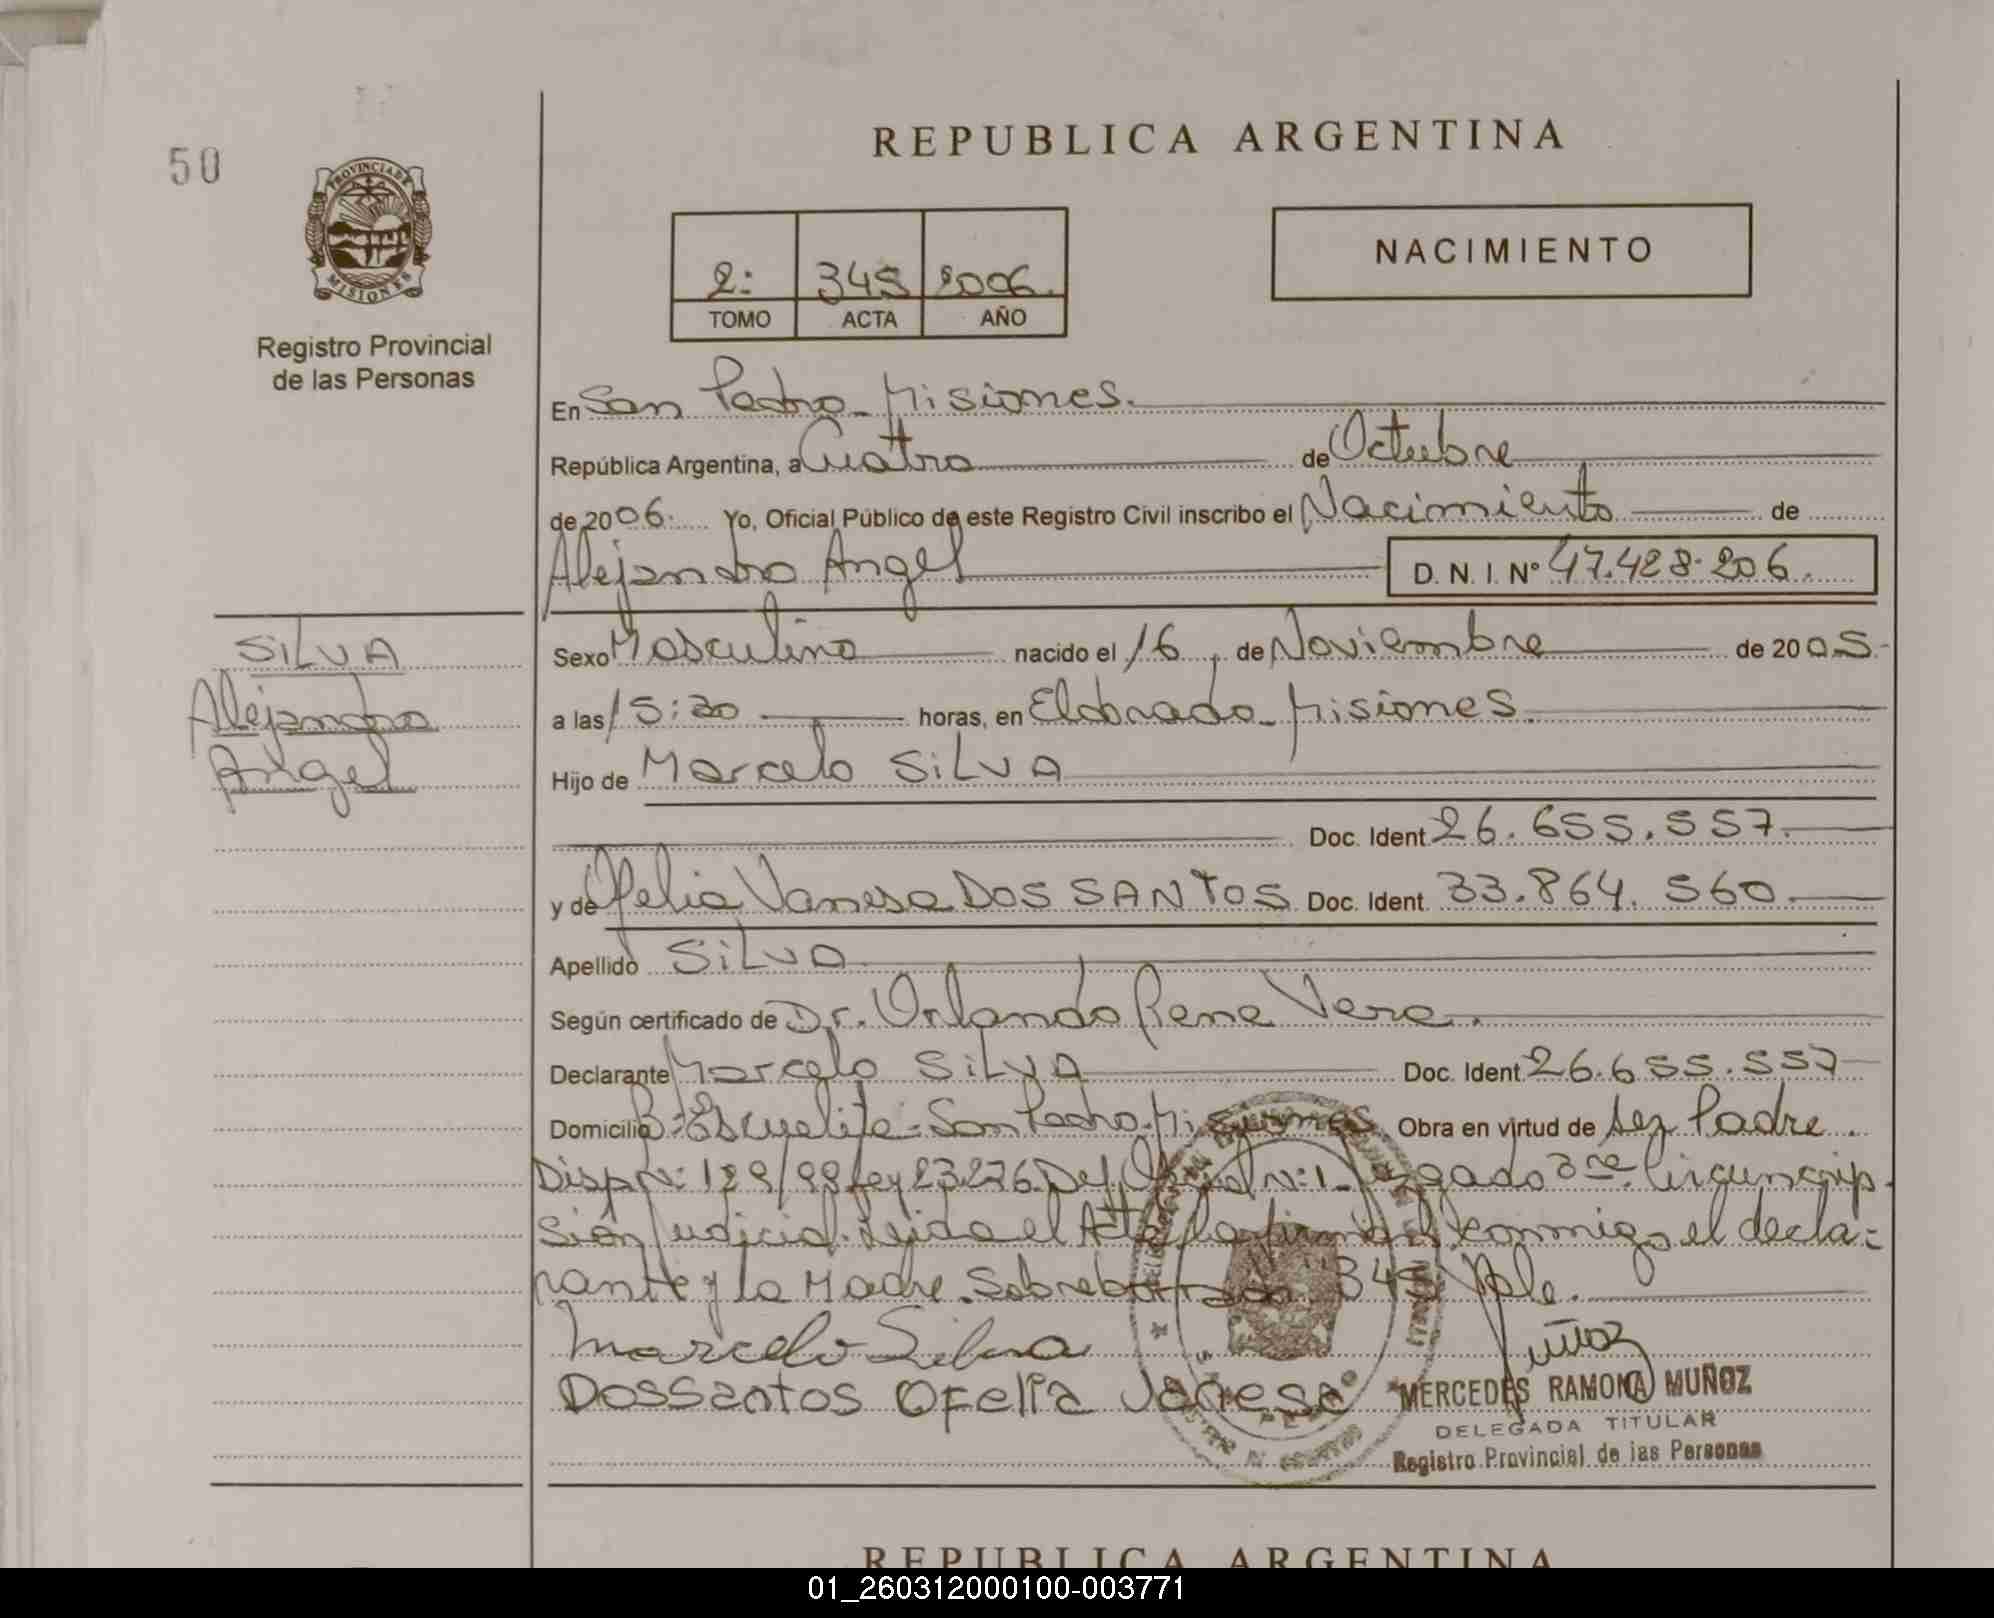 50
PROVINCIA DE
MISIONES
Registro Provincial
de las Personas
REPUBLICA ARGENTINA
2: 345 2006.
TOMO ACTA AÑO
NACIMIENTO
En San Pedro- Misiones.
República Argentina, a Cuatro de Octubre
de 2006. Yo, Oficial Público de este Registro Civil inscribo el Nacimiento de
Alejandro Angel D. N. I. Nº 47.428.206.
SILVA
Alejandro
Angel
Sexo Masculino nacido el 16, de Noviembre de 2005.-
a las 15:20 horas, en Eldorado- Misiones.
Hijo de Marcelo SILVA
Doc. Ident 26.655.557.
y de Ofelia Vanesa DOS SANTOS Doc. Ident. 33.864.560.
Apellido SILVA
Según certificado de Dr. Orlando Rene Vera.
Declarante Marcelo SILVA Doc. Ident. 26.655.557
Domicilio Bº Escuelita- San Pedro- Misiones Obra en virtud de ser Padre.
Disp Nº: 129/99 Ley 23.276. Def. Oficial Nº: 1- Juzgado 3ra. Circunscrip-
sión Judicial. Leida el Acta la firman conmigo el decla-
rante y la Madre. Sobreborrado: "345" Vale.
Marcelo Silva
DosSantos OFelia Vanesa
Muñoz
MERCEDES RAMONA MUÑOZ
DELEGADA TITULAR
Registro Provincial de las Personas
REPUBLICA ARGENTINA
01_260312000100-003771